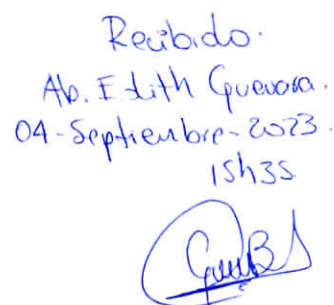 Recibido.
Ab. Edith Guevara.
04-Septiembre-2023.
15h35